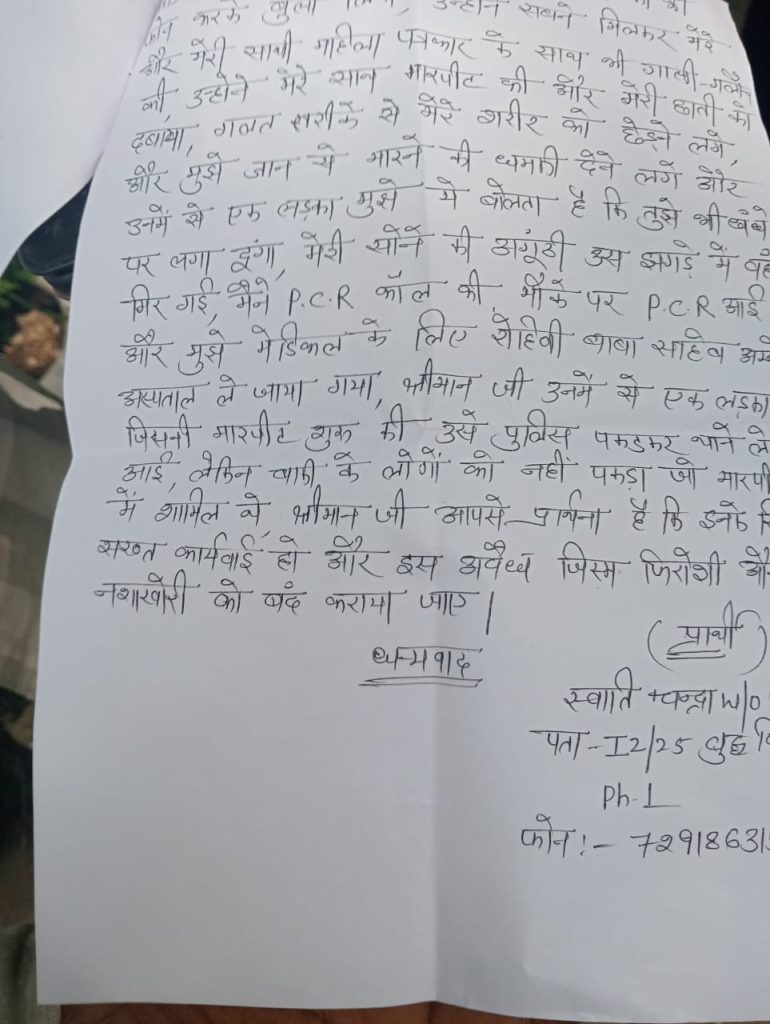 फोन करके बुला लिया, उन्होंने सबने मिलकर मेरे
और मेरी साथी महिला पत्रकार के साथ भी गाली-गलौच
की, उन्होने मेरे साथ मारपीट की और मेरी छाती को
दबाया, गलत तरीके से मेरे शरीर को छेड़ने लगे,
और मुझे जान से मारने की धमकी देने लगे और
उनमें से एक लड़का मुझे से बोलता है कि तुझे भी धंधे
पर लगा दूंगा, मेरी सोने की अगूंठी उस झगड़े में वही
गिर गई, मैने P.C.R कॉल की, मौके पर P.C.R आई
और मुझे मेडिकल के लिए रोहिणी बाबा साहेब
अस्पताल ले जाया गया, श्रीमान जी उनमें से एक लड़का
जिसनी मारपीट शुरू की उसे पुलिस पकडकर थाने ले
आई, लेकिन बाकी के लोगों को नहीं पकड़ा जो
में शामिल थे, श्रीमान जी आपसे प्रार्थना है कि इनके
सख्त कार्यवाई हो और इस अवैध्ध जिस्म फिरोशी
नशाखोरी को बंद कराया जाए।
धन्यवाद
(प्रार्थी)
स्वाति चन्द्रा W/O
पता - I2/25 बुद्ध
Ph-1
फोन :- 72918631